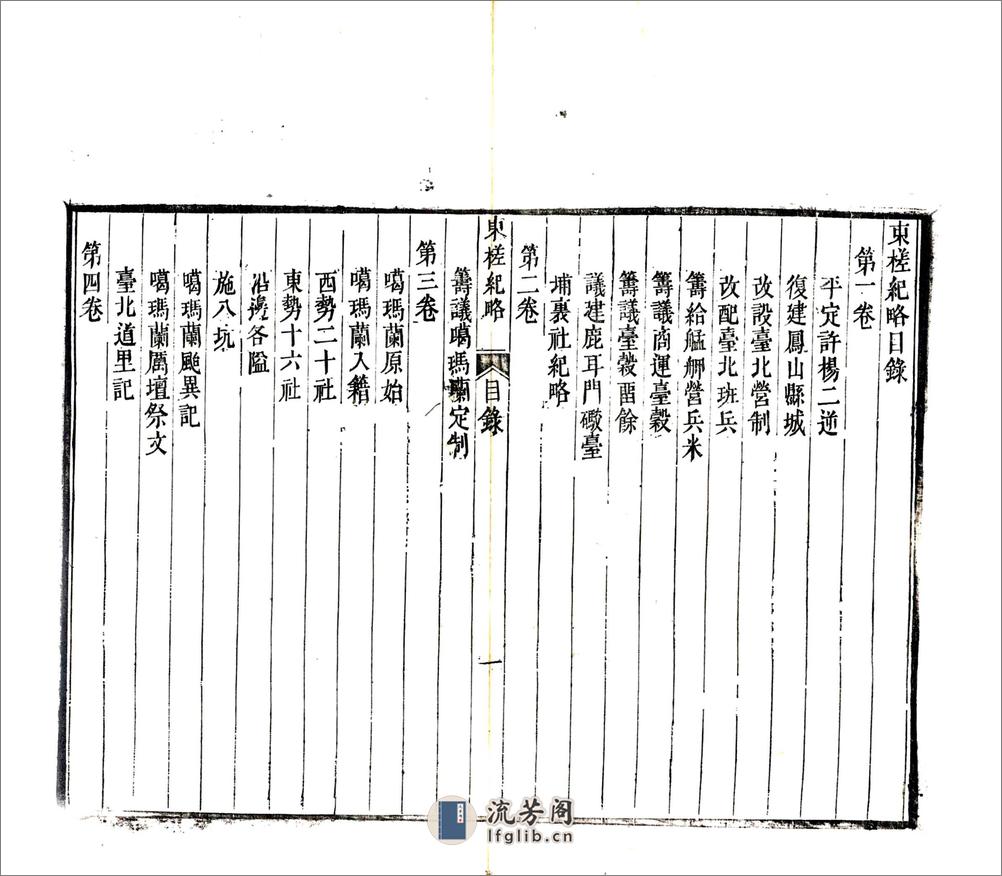 東槎紀略目錄
第一卷
平定許楊二逆
復建鳳山縣城
改設臺北營制
改配臺北班兵
籌給艋舺營兵米
籌議商運臺穀
籌議臺穀畱餘
議建鹿耳門礮臺
埔裏社紀略
第二卷
東槎紀略
目錄
一
籌議噶瑪蘭定制
第三卷
噶瑪蘭原始
噶瑪蘭入籍
西勢二十社
東勢十六社
沿邊各隘
施八坑
噶瑪蘭颱異記
噶瑪蘭厲壇祭文
臺北道里記
第四卷
流芳阁
lfglib.cn